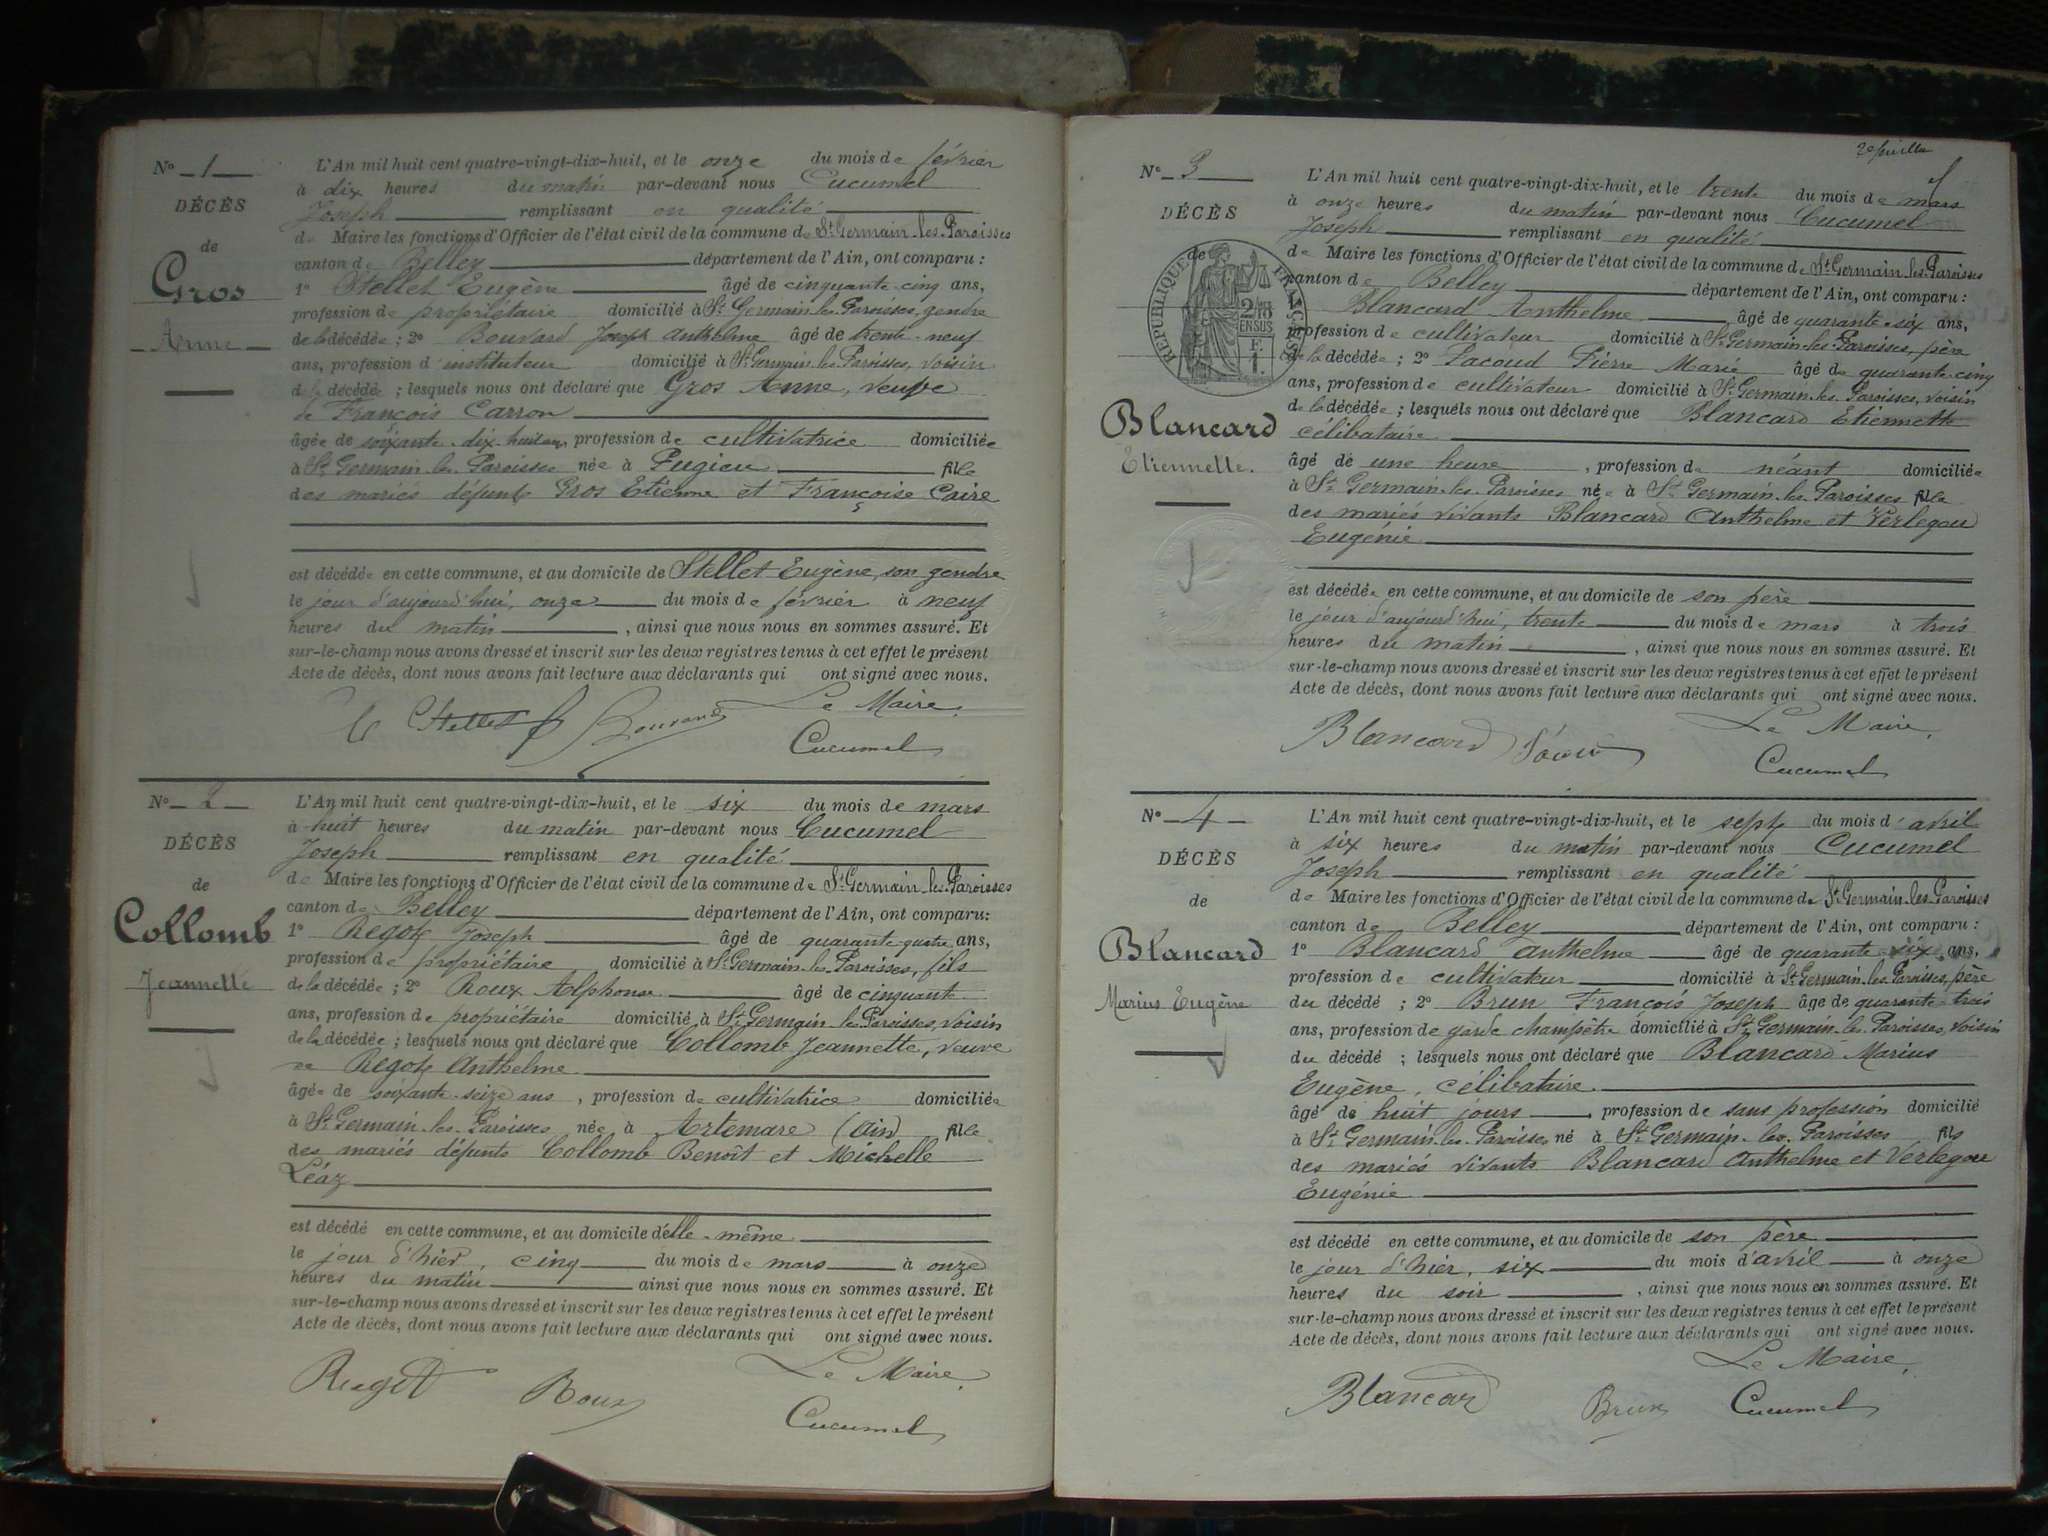 N° 1
DÉCÈS
de
Gros
Anne
L'An mil huit cent quatre-vingt-dix-huit, et le onze du mois de février
à dix heures du matin par-devant nous Cucumel
Joseph remplissant en qualité
de Maire les fonctions d'Officier de l'état civil de la commune de St Germain-les-Paroisses
canton de Belley département de l'Ain, ont comparu :
1° Stellet Eugène âgé de cinquante-cinq ans,
profession de propriétaire domicilié à St Germain-les-Paroisses, gendre
de la décédée ; 2° Bouvard Joseph Anthelme âgé de trente-neuf
ans, profession d'instituteur domicilié à St Germain-les-Paroisses, voisin
de la décédée ; lesquels nous ont déclaré que Gros Anne, veuve
de François Carron
âgée de soixante-dix-huit ans profession de cultivatrice domiciliée
à St Germain-les-Paroisses née à Pugieu fille
des mariés défunts Gros Etienne et Françoise Caire
est décédée en cette commune, et au domicile de Stellet Eugène, son gendre
le jour d'aujourd'hui, onze du mois de février à neuf
heures du matin, ainsi que nous nous en sommes assuré. Et
sur-le-champ nous avons dressé et inscrit sur les deux registres tenus à cet effet le présent
Acte de décès, dont nous avons fait lecture aux déclarants qui ont signé avec nous.
Stellet Bouvard Le Maire,
Cucumel
N° 2
DÉCÈS
de
Collomb
Jeannette
L'An mil huit cent quatre-vingt-dix-huit, et le six du mois de mars
à huit heures du matin par-devant nous Cucumel
Joseph remplissant en qualité
de Maire les fonctions d'Officier de l'état civil de la commune de St Germain-les-Paroisses
canton de Belley département de l'Ain, ont comparu :
1° Regot Joseph âgé de quarante-quatre ans,
profession de propriétaire domicilié à St Germain-les-Paroisses, fils
de la décédée ; 2° Roux Alphonse âgé de cinquante
ans, profession de propriétaire domicilié à St Germain-les-Paroisses, voisin
de la décédée ; lesquels nous ont déclaré que Collomb Jeannette, veuve
de Regot Anthelme
âgée de soixante-seize ans, profession de cultivatrice domiciliée
à St Germain-les-Paroisses née à Artemare (Ain) fille
des mariés défunts Collomb Benoît et Michelle
Léaz
est décédé en cette commune, et au domicile d'elle-même
le jour d'hier, cinq du mois de mars à onze
heures du matin ainsi que nous nous en sommes assuré. Et
sur-le-champ nous avons dressé et inscrit sur les deux registres tenus à cet effet le présent
Acte de décès, dont nous avons fait lecture aux déclarants qui ont signé avec nous.
Roux Le Maire,
Cucumel
2e feuille
N° 3
DÉCÈS
de
RÉPUBLIQUE FRANÇAISE
2/10
EN SUS
Blancard
Etiennette.
L'An mil huit cent quatre-vingt-dix-huit, et le trente du mois de mars
à onze heures du matin par-devant nous Cucumel
Joseph remplissant en qualité
de Maire les fonctions d'Officier de l'état civil de la commune de St Germain-les-Paroisses
canton de Belley département de l'Ain, ont comparu :
Blancard Anthelme âgé de quarante-six ans,
profession de cultivateur domicilié à St Germain-les-Paroisses, père
de la décédée ; 2° Lacoud Pierre Marie âgé de quarante-cinq
ans, profession de cultivateur domicilié à St Germain-les-Paroisses, voisin
de la décédée ; lesquels nous ont déclaré que Blancard Etiennette
célibataire
âgé de une heure, profession de néant domiciliée
à St Germain-les-Paroisses née à St Germain-les-Paroisses fille
des mariés vivants Blancard Anthelme et Verlegou
Eugénie
est décédée en cette commune, et au domicile de son père
le jour d'aujourd'hui, trente du mois de mars à trois
heures du matin, ainsi que nous nous en sommes assuré. Et
sur-le-champ nous avons dressé et inscrit sur les deux registres tenus à cet effet le présent
Acte de décès, dont nous avons fait lecture aux déclarants qui ont signé avec nous.
Blancard Le Maire,
Cucumel
N° 4
DÉCÈS
de
Blancard
Marius Eugène
L'An mil huit cent quatre-vingt-dix-huit, et le sept du mois d'avril
à six heures du matin par-devant nous Cucumel
Joseph remplissant en qualité
de Maire les fonctions d'Officier de l'état civil de la commune de St Germain-les-Paroisses
canton de Belley département de l'Ain, ont comparu :
1° Blancard Anthelme âgé de quarante-six ans,
profession de cultivateur domicilié à St Germain-les-Paroisses, père
du décédé ; 2° Brun François Joseph âgé de quarante-trois
ans, profession de garde champêtre domicilié à St Germain-les-Paroisses, voisin
du décédé ; lesquels nous ont déclaré que Blancard Marius
Eugène, célibataire
âgé de huit jours, profession de sans profession domicilié
à St Germain-les-Paroisses né à St Germain-les-Paroisses fils
des mariés vivants Blancard Anthelme et Verlegou
Eugénie
est décédé en cette commune, et au domicile de son père
le jour d'hier, six du mois d'avril à onze
heures du soir, ainsi que nous nous en sommes assuré. Et
sur-le-champ nous avons dressé et inscrit sur les deux registres tenus à cet effet le présent
Acte de décès, dont nous avons fait lecture aux déclarants qui ont signé avec nous.
Le Maire,
Blancard Brun Cucumel